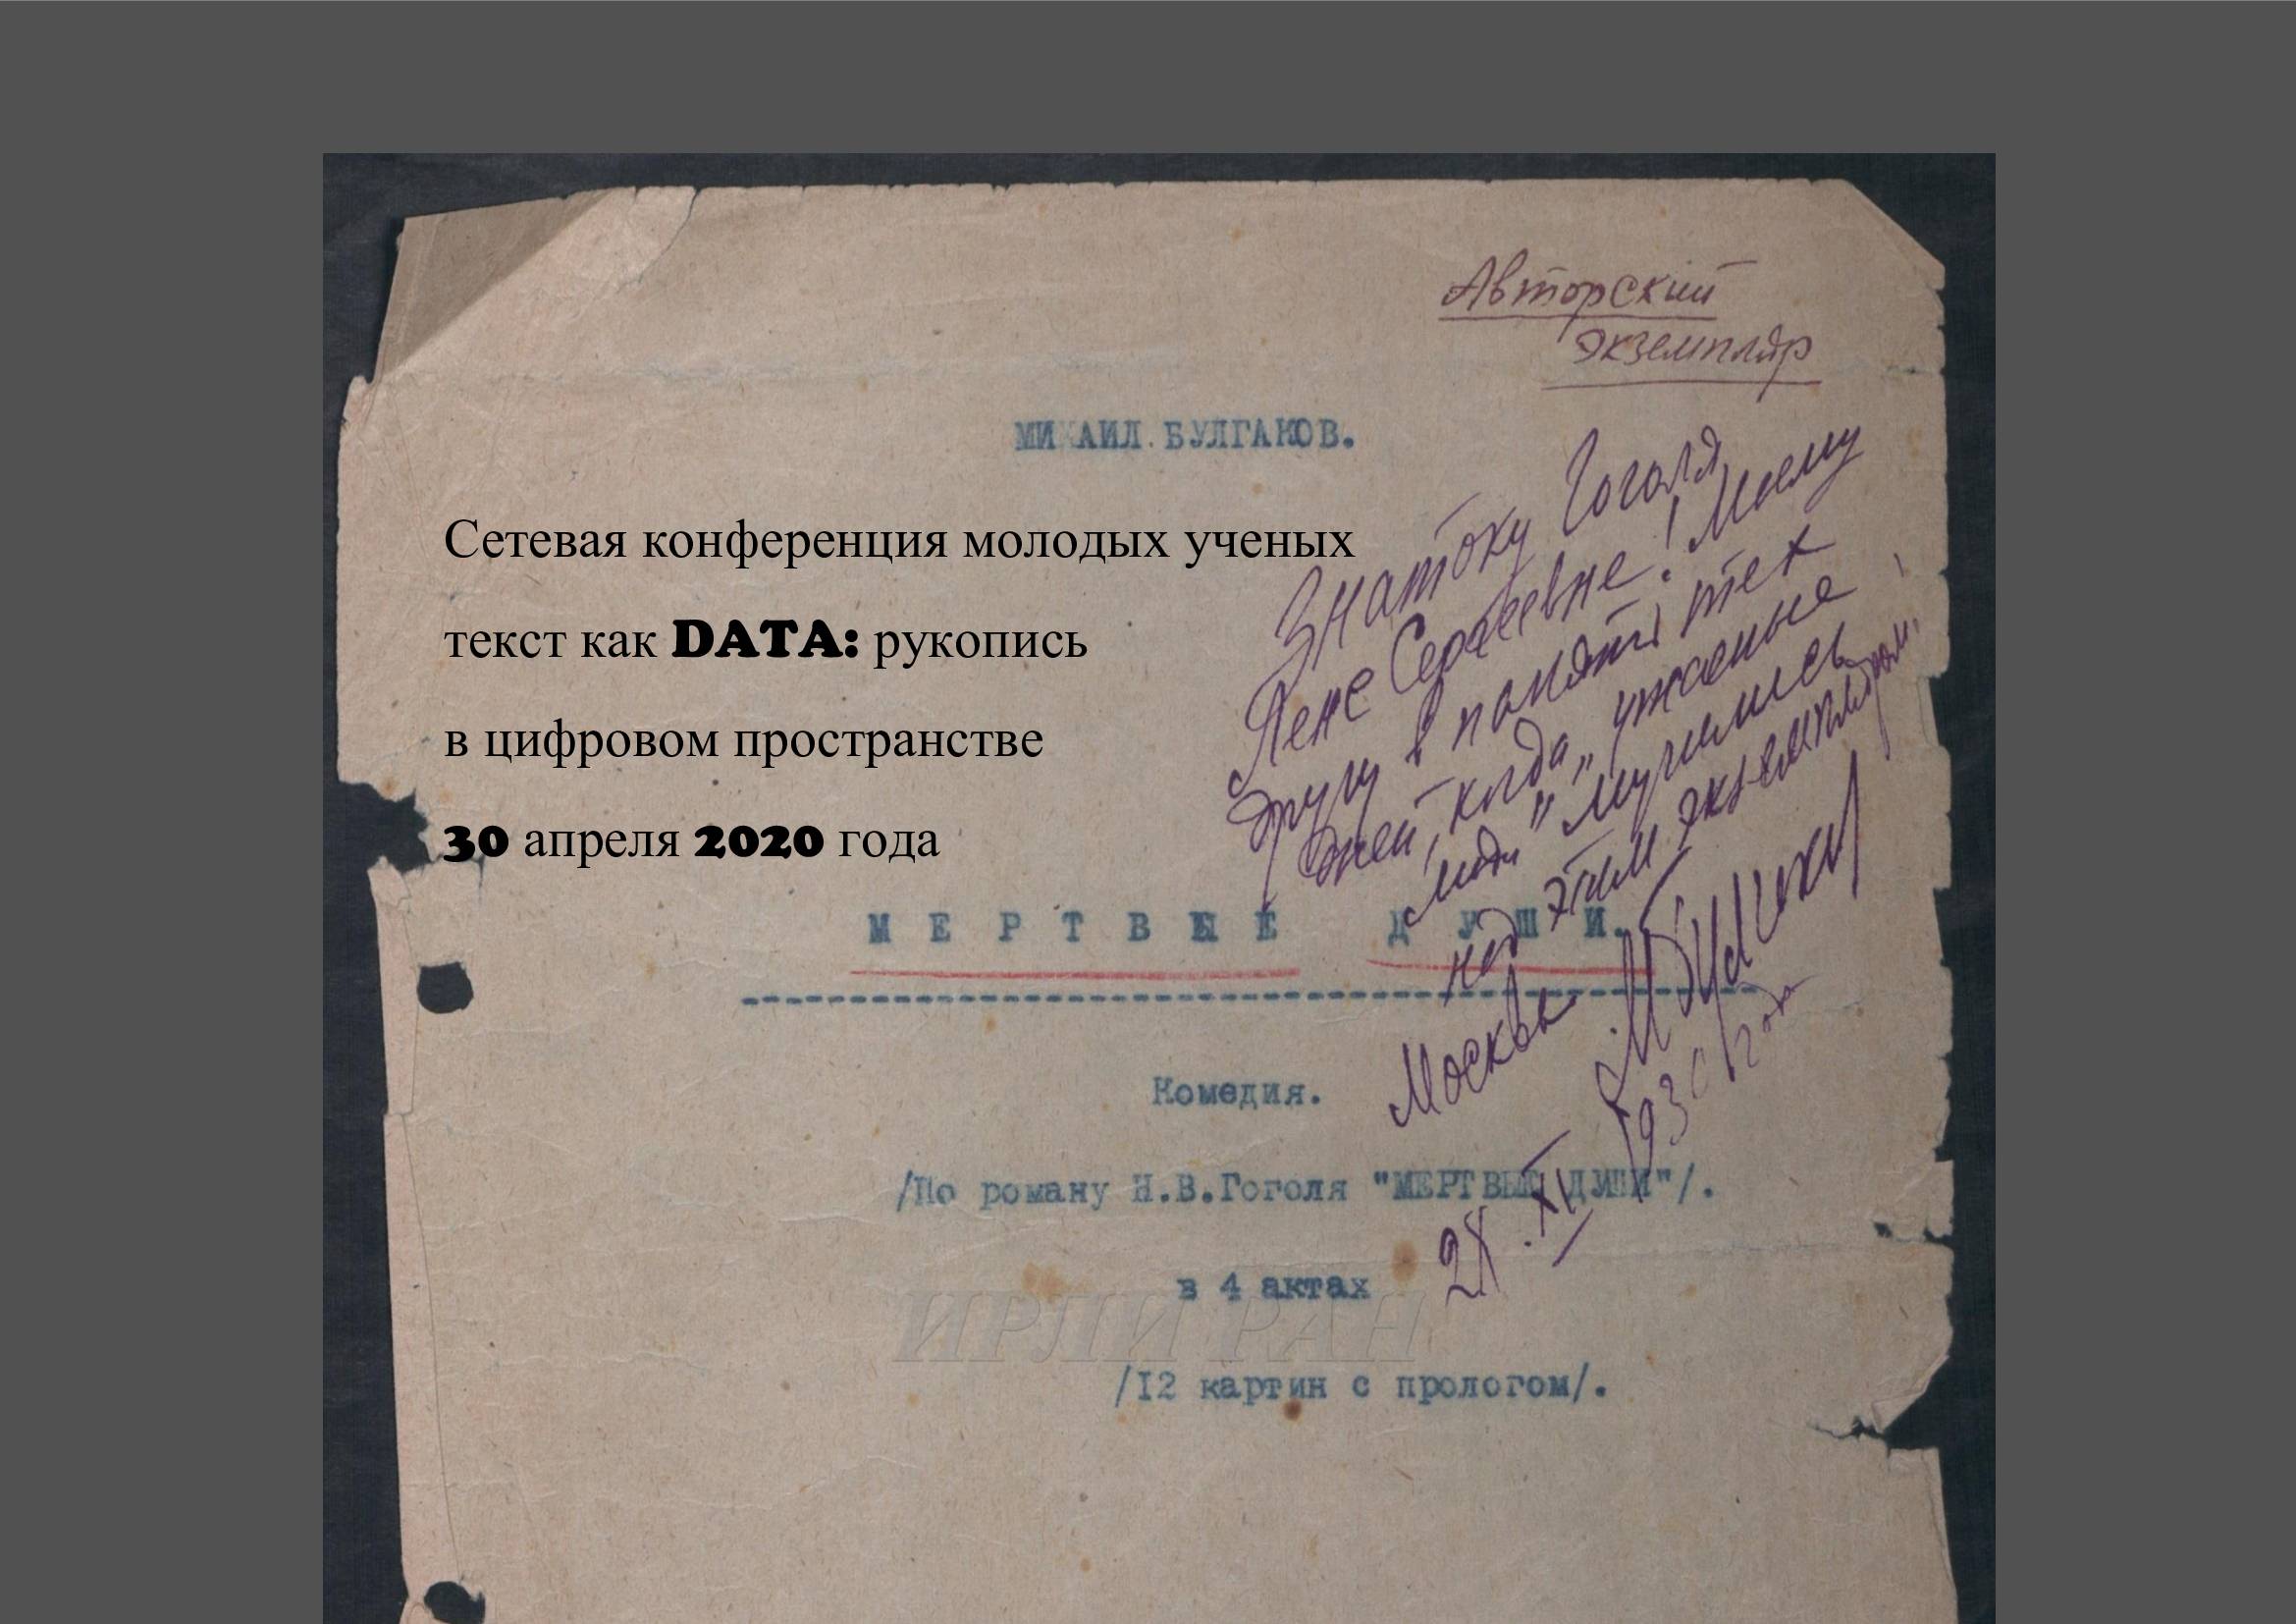 Авторский
экземпляр
МИХАИЛ БУЛГАКОВ.
Знатоку Гоголя
Лене Сергеевне! Моему
другу в память тех
дней, когда „ужасные
люди" мучились
над этим экземпляром.
М Булгаков
Москва
2X.XI 1930 года
Сетевая конференция молодых ученых
текст как DATA: рукопись
в цифровом пространстве
30 апреля 2020 года
МЕРТВЫЕ ДУШИ.
Комедия.
/По роману Н.В.Гоголя "МЕРТВЫЕ ДУШИ"/.
в 4 актах
ИРЛИ РАН
/I2 картин с прологом/.